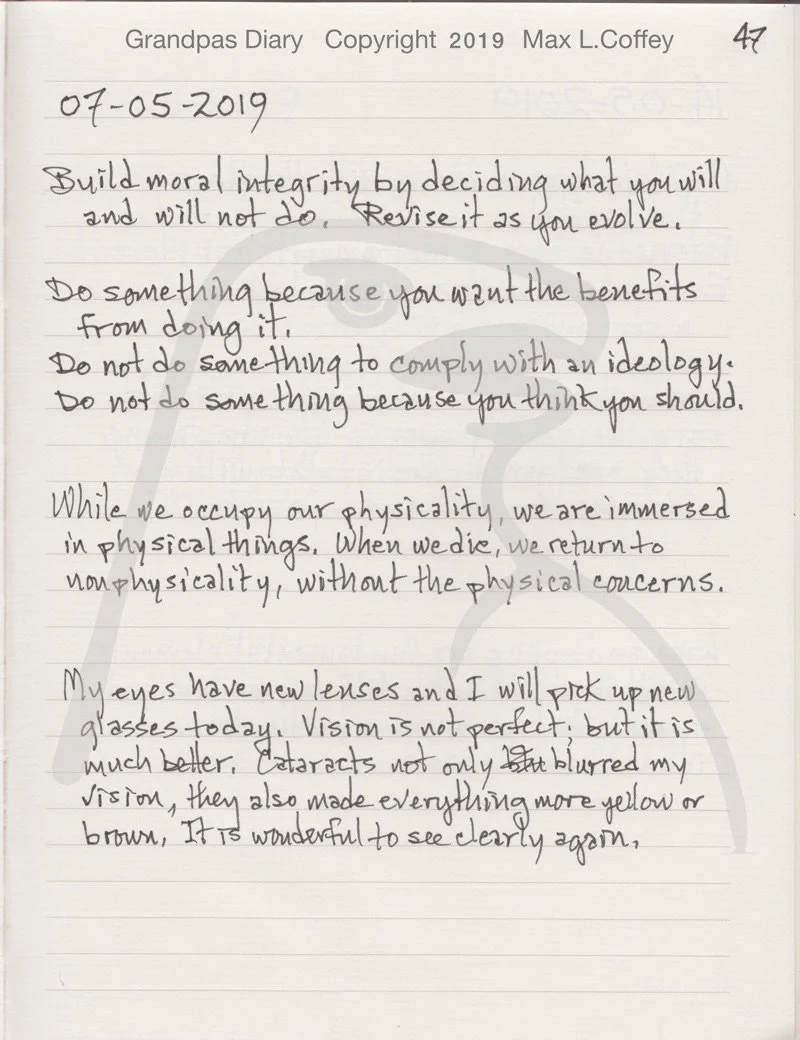 Grandpas Diary Copyright 2019 Max L.Coffey 47
07-05-2019
Build moral integrity by deciding what you will
and will not do. Revise it as you evolve.
Do something because you want the benefits
from doing it.
Do not do something to comply with an ideology.
Do not do something because you think you should.
While we occupy our physicality, we are immersed
in physical things. When we die, we return to
nonphysicality, without the physical concerns.
My eyes have new lenses and I will pick up new
glasses today. Vision is not perfect; but it is
much better. Cataracts not only blurred my
vision, they also made everything more yellow or
brown. It is wonderful to see clearly again.